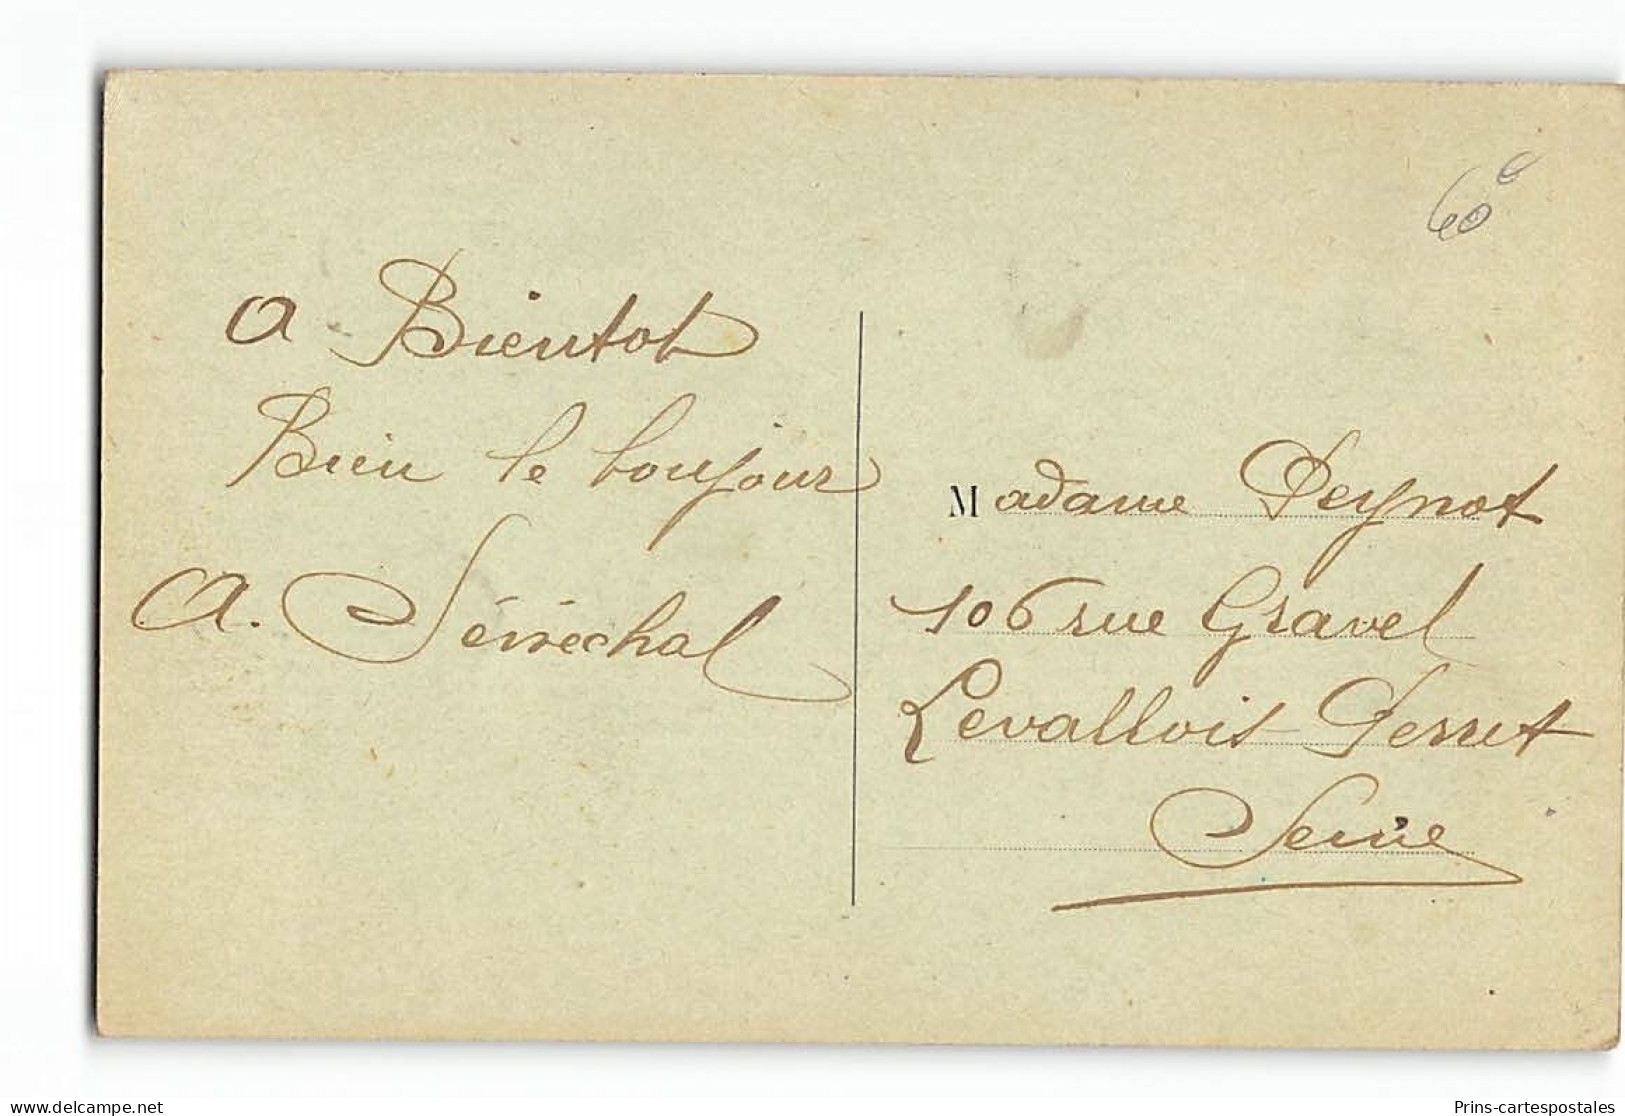 60€
a Bientot
Bien le bonjour
A. Sénéchal
Madame Peynot
106 rue Gravel
Levallois Perret
Seine
delcampe.net
Prins-cartespostales